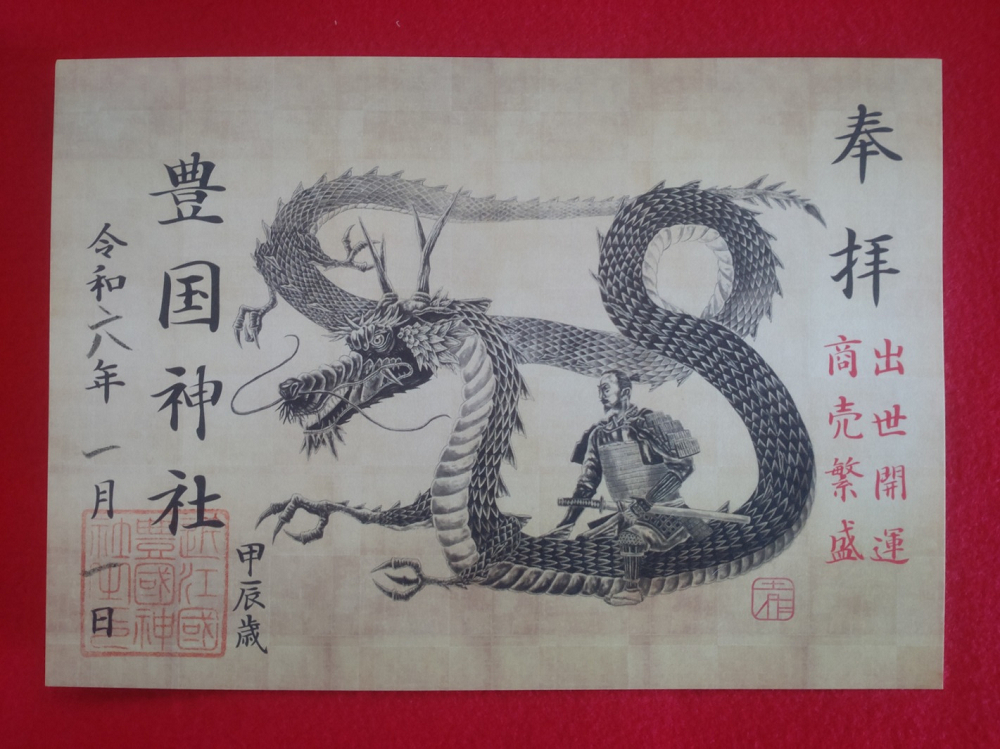 奉拝
出世開運
商売繁盛
甲辰歳
豊国神社
令和六八年 一月一日
近江國
豊國神
社之印